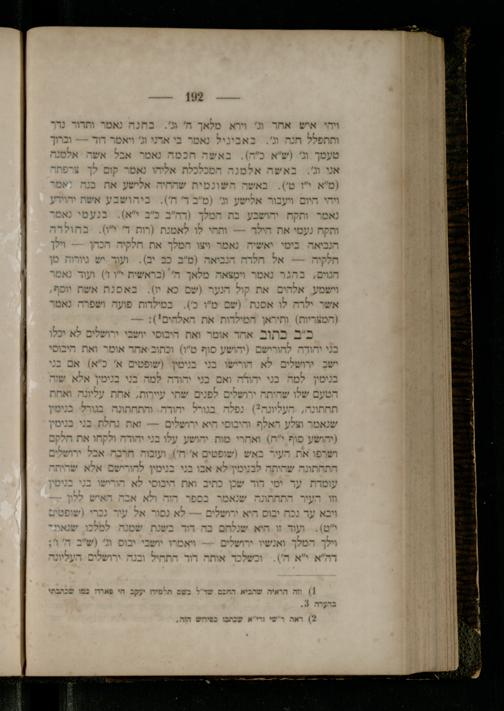 — 192 —
ויהי איש אחד וג' וירא מלאך ה' וג'. בחנה נאמר ותדור נדר
ותתפלל חנה וג'. באביגיל נאמר בי אדני וג' ויאמר דוד — וברוך
טעמך וג' (ש"א כ"ה). באשה חכמה נאמר אבל אשה אלמנה
אני וג'. באשה אלמנה המכלכלת אליהו נאמר קום לך צרפתה
(מ"א י"ז ט'). באשה השונמית שהחיה אלישע את בנה נאמר
ויהי היום ויעבור אלישע וג' (מ"ב ד' ח'). ביהושבע אשת יהוידע
נאמר ותקח יהושבע בת המלך (דה"ב כ"ב י"א). בנעמי נאמר
ותקח נעמי את הילד — ותהי לו לאמנת (רות ד' י"ו). בחולדה
הנביאה בימי יאשיה נאמר ויצו המלך את חלקיה הכהן — וילך
חלקיה — אל חלדה הנביאה (מ"ב כב יב). ועוד יש גיורות מן
הגוים, בהגר נאמר וימצאה מלאך ה' (בראשית י"ו ז') ועוד נאמר
וישמע אלהים את קול הנער (שם כא יז). באסנת אשת יוסף,
אשר ילדה לו אסנת (שם מ"ו כ'). במילדות פועה ושפרה נאמר
(המצריות) ותיראן המילדות את האלהים¹): —
כ"ב כתוב אחד אומר ואת היבוסי יושבי ירושלים לא יכלו
בני יהודה להורישם (יהושע סוף ט"ו) וכתוב אחד אומר ואת היבוסי
ישב ירושלים לא הורישו בני בנימין (שופטים א' כ"א) אם בני
בנימין למה בני יהודה ואם בני יהודה למה בני בנימין אלא שזה
הטעם שלו שהיתה ירושלים לפנים שתי עיירות, אחת עליונה ואחת
תחתונה, העליונה²) נפלה בגורל יהודה והתחתונה בגורל בנימין
שנאמר וצלע האלף והיבוסי היא ירושלים — זאת נחלת בני בנימין
(יהושע סוף י"ח) ואחרי מות יהושע עלו בני יהודה ולקחו את חלקם
ושרפו את העיר באש (שופטים א' ח') ועזבוה חרבה אבל ירושלים
התחתונה שהיתה לבנימין לא אבו בני בנימין להורישם אלא שהיתה
עומדת עד ימי דוד שכן כתיב ואת היבוסי לא הורישו בני בנימין
וזו העיר התחתונה שנאמר בספר הזה ולא אבה האיש ללון —
ויבא עד נכח יבוס היא ירושלים — לא נסור אל עיר נכרי (שופטים
י"ט). ועוד זו היא שנלחם בה דוד בשנת שמנה למלכו שנאמר
וילך המלך ואנשיו ירושלים — ויאמרו יושבי יבוס וג' (ש"ב ה' ו';
דה"א י"א ה'). וכשלכד אותה דוד התחיל ובנה ירושלים העליונה
1) וזה הראיה שהביא החכם שד"ל בשם תלמידו יעקב חי פארדו כמו שכתבתי
בהערה 3.
2) ראה רש"י ורי"א שכתבו כפירוש הזה.